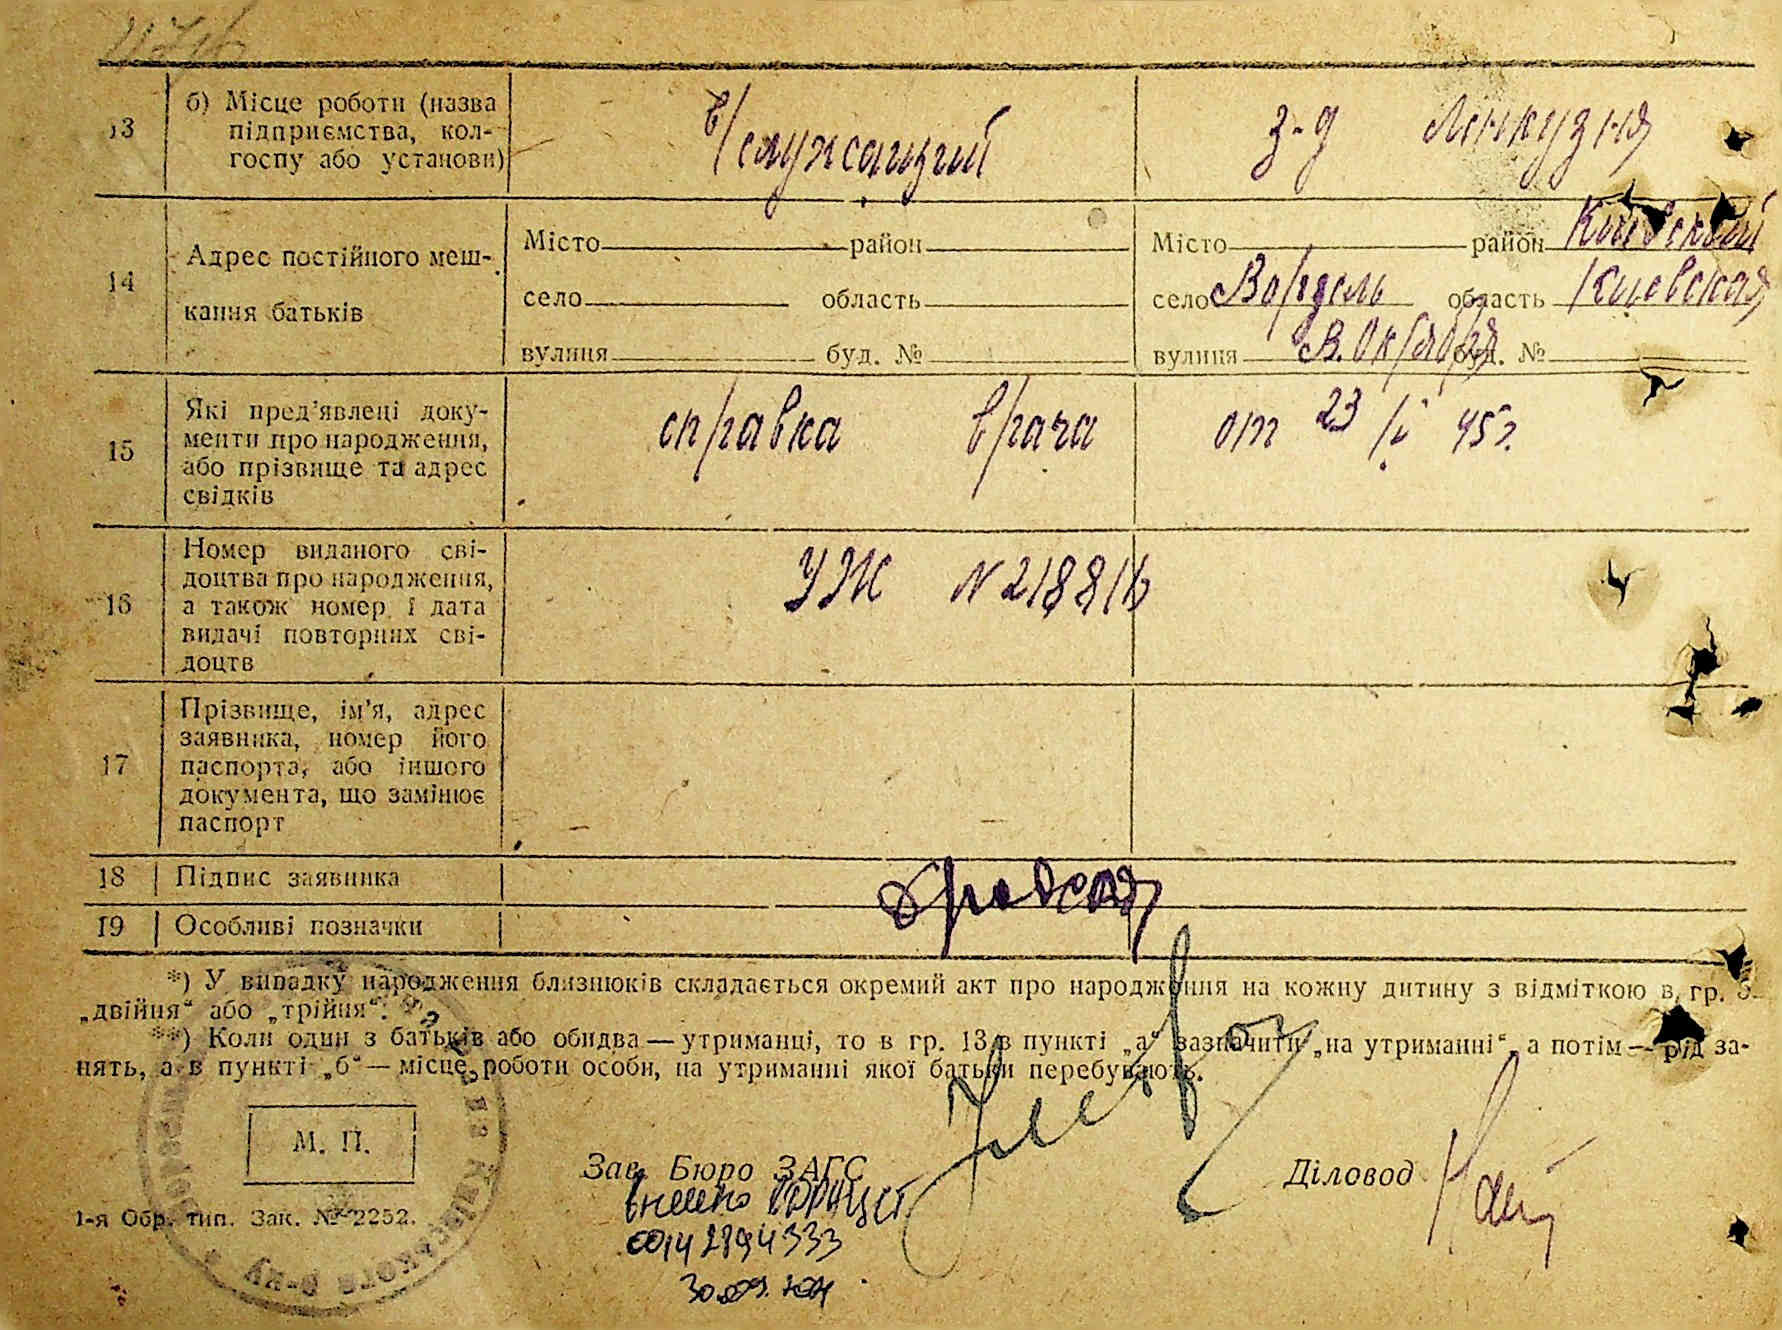 13 б) Місце роботи (назва підприємства, колгоспу або установи) в/служащий з-д Ленкузня
14 Адрес постійного меш-
кання батьків
Місто район Місто район Киевский
село область село Ворзель область Киевская
вулиця буд. № вулиця В. Октября буд. №
15 Які пред’явлені доку-
менти про народження,
або прізвище та адрес
свідків
справка врача от 23/II 45г.
16 Номер виданого сві-
доцтва про народження,
а також номер і дата
видачі повторних сві-
доцтв
УЖ N 218816
17 Прізвище, ім’я, адрес
заявника, номер його
паспорта, або іншого
документа, що замінює
паспорт
18 Підпис заявника
19 Особливі позначки
*) У випадку народження близнюків складається окремий акт про народження на кожну дитину з відміткою в гр. 3
„двійня“ або „трійня“.
**) Коли один з батьків або обидва — утриманці, то в гр. 13 в пункті „а“ зазначити „на утриманні“, а потім — рід за-
нять, а в пункті „б“ — місце роботи особи, на утриманні якої батьки перебувають.
М. П.
Зав. Бюро ЗАГС
Діловод
внесено
00142894333
30.09.
1-я Обр. тип. Зак. № 2252.